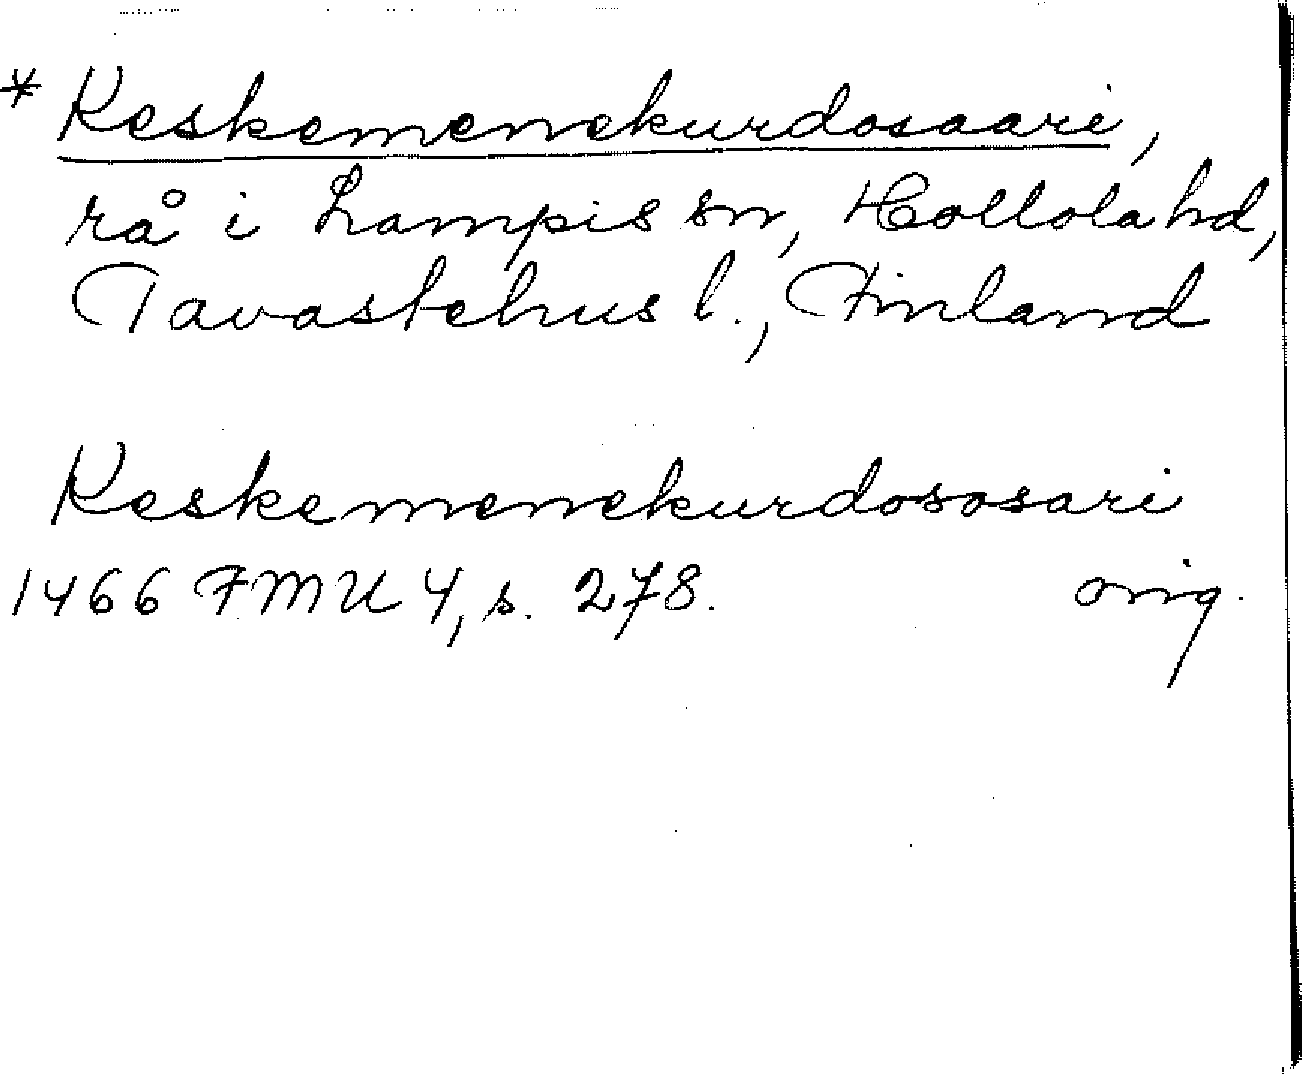 * Keskemenekurdosaari,
rå i Lampis sn, Hollola hd,
Tavastehus l., Finland
Keskemenekurdososari
1466 FMU 4, s. 278. orig.